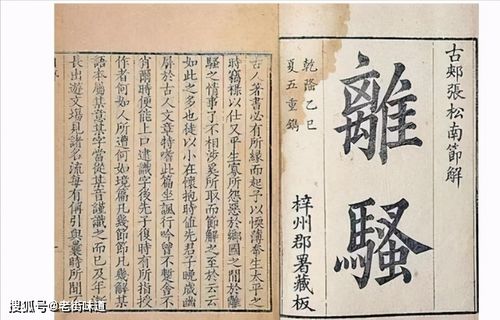 古郟張松南節解
離騷
乾隆乙巳
夏五重鐫
梓州郡署藏板
古人著書必有所緣而起予以愞薄幸生太平之
時竊祿以仕又平生寡所怨惡於鄉國之間於離
騷之情事了不相涉奚所取而節解之至於云云
如此之多也徒以小在懷抱時值先君子晚歲
屏於古人文章特嗜此篇坐諷行唫曾不蹔舍不
肖爾時便能上口逮識字後先子復時有所指授
作者何如人所遭何如境篇凡幾節節凡幾解某
語本屬某意某字當從某音謹識之而已及年
長出遊文場見諸名流每有偁引與曩時所聞
搜狐号@老街味道